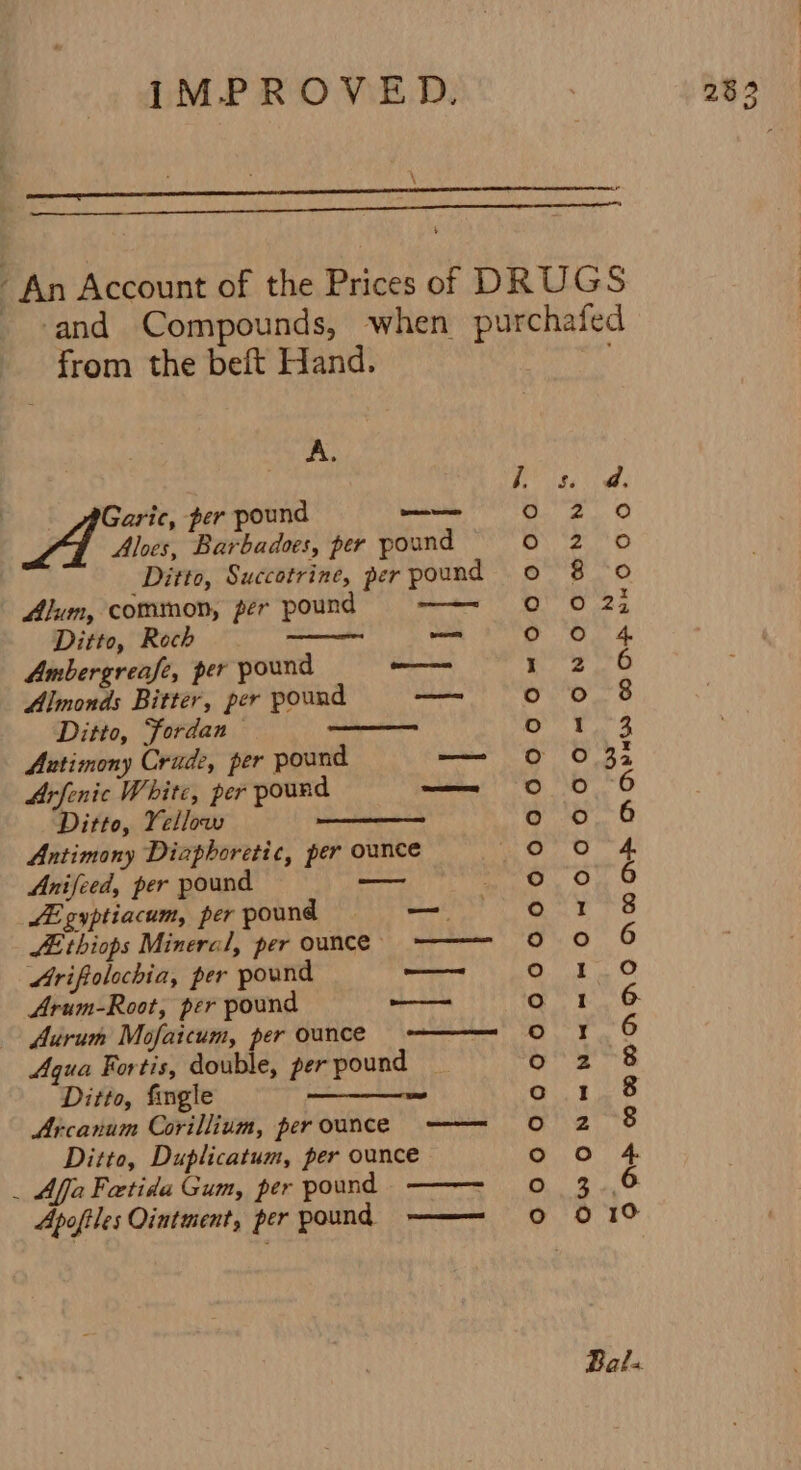 IMPROVED. 283
An Account of the Prices of DRUGS
and Compounds, when purchaſed
from the beſt Hand.
A.
l. s. d.
AGaric, per pound —— 0 2 0
Aloes, Barbadoes, per pound 0 2 0
Ditto, Succotrine, per pound 0 8 0
Alum, common, per pound —— 0 0 2½
Ditto, Roch —— — 0 0 4
Ambergreaſe, per pound —— 1 2 6
Almonds Bitter, per pound —— 0 0 8
Ditto, Jordan —— 0 1 3
Antimony Crude, per pound —— 0 0 3½
Arſenic White, per pound —— 0 0 6
Ditto, Yellow —— 0 0 6
Antimony Diaphoretic, per ounce 0 0 4
Aniſeed, per pound —— 0 0 6
Ægyptiacum, per pound — 0 1 8
Æthiops Mineral, per ounce —— 0 0 6
Ariſtolochia, per pound —— 0 1 0
Arum-Root, per pound —— 0 1 6
Aurum Moſaicum, per ounce —— 0 1 6
Aqua Fortis, double, per pound 0 2 8
Ditto, ſingle —— 0 1 8
Arcanum Corillium, per ounce —— 0 2 8
Ditto, Duplicatum, per ounce 0 0 4
Aſſa Fœtida Gum, per pound —— 0 3 6
Apoſtles Ointment, per pound —— 0 0 10
Bal-